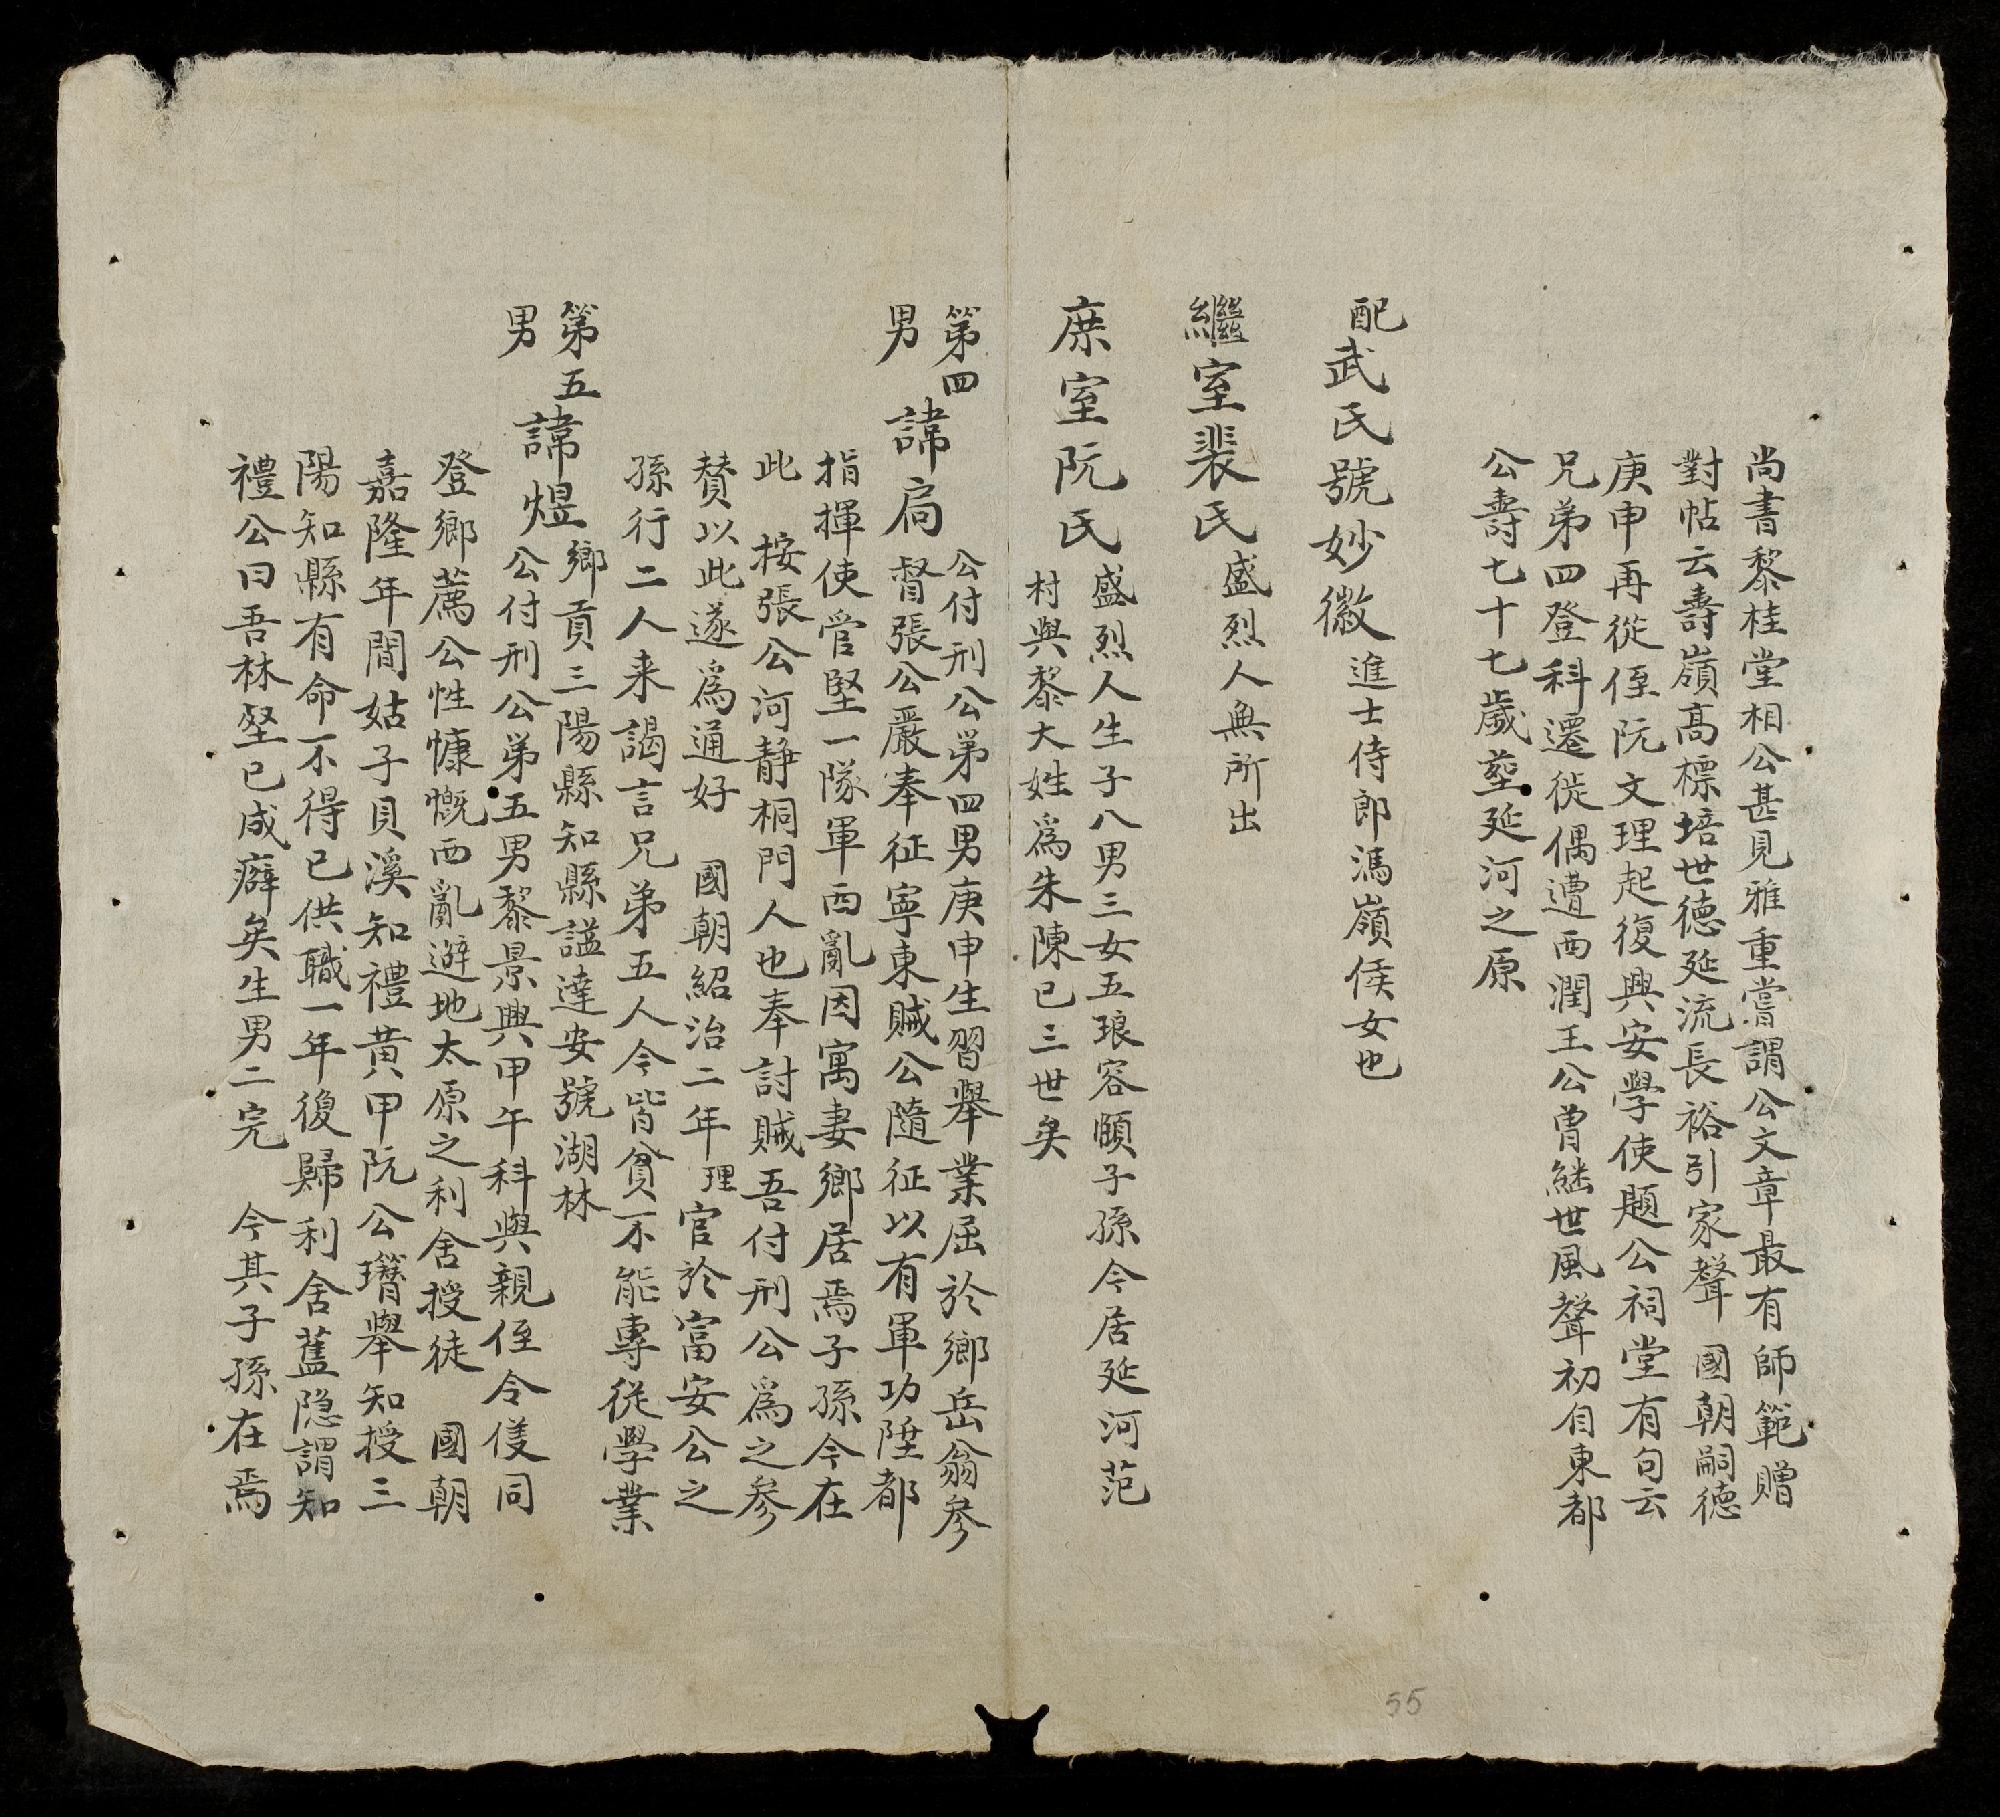 尚書黎桂堂相公甚見雅重嘗謂公文章最有師範贈
對帖云壽嶺高標培世德延流長裕引家聲 國朝嗣德
庚申再從侄阮文理起復興安學使題公祠堂有句云
兄弟四登科遷徙偶遭西潤王公曾継世風聲初自東都
公壽七十七歲塟延河之原
配武氏號妙徽進士侍郎馮嶺侯女也
繼室裴氏盛烈人無所出
庶室阮氏盛烈人生子八男三女五琅容頤子孫今居延河范
村與黎大姓爲朱陳已三世矣
第四男 諱扃 公付刑公第四男庚申生習舉業屈於鄉岳翁參
督張公嚴奉征寧東賊公隨征以有軍功陞都
指揮使管堅一隊軍西亂因寓妻鄉居焉子孫今在
此 按張公河静桐門人也奉討賊吾付刑公爲之參
賛以此遂爲通好 國朝紹治二年理官於富安公之
孫行二人来謁言兄弟五人今皆貧不能專從學業
第五男 諱煜 鄉貢三陽縣知縣諡達安號湖林
公付刑公第五男黎景興甲午科與親侄令僅同
登鄉薦公性慷慨西亂避地太原之利舍授徒 國朝
嘉隆年間姑子貝溪知禮黄甲阮公璔舉知授三
陽知縣有命不得已供職一年復歸利舍舊隐謂知
禮公曰吾林壑已成癖矣生男二完 今其子孫在焉
55